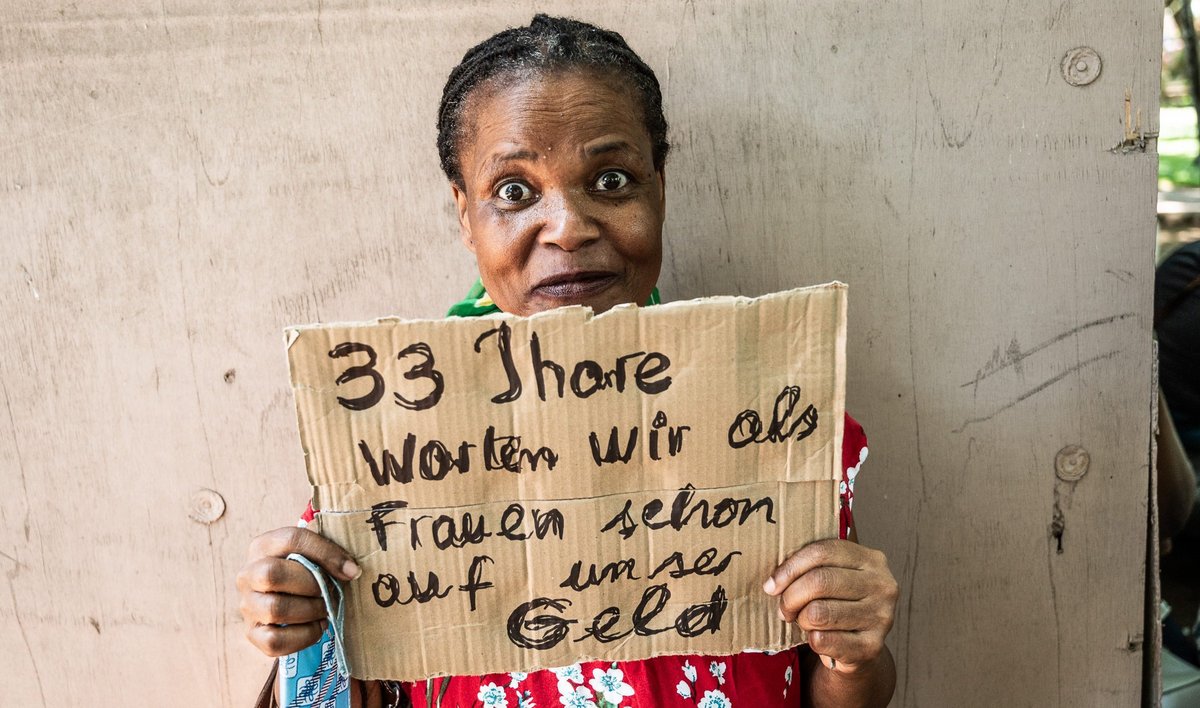 33 Jhare
warten wir als
Frauen schon
auf unser
Geld